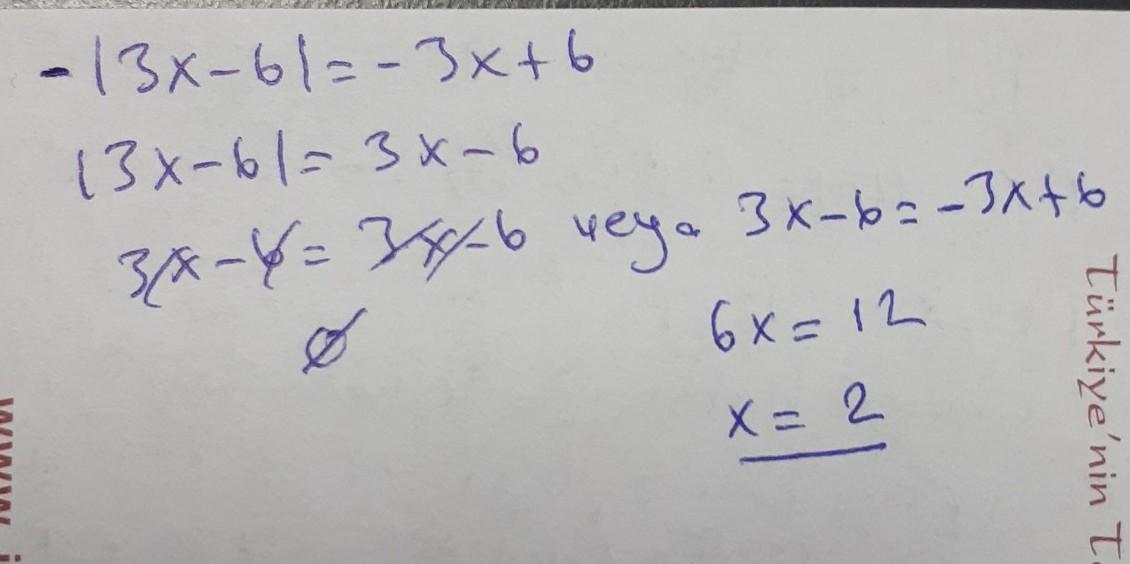 -|3x-6|=-3x+6
|3x-6|= 3x-6
3x-6= 3x-6 veya 3x-6=-3x+6
∅
6x= 12
x= 2
Türkiye'nin T
www.i